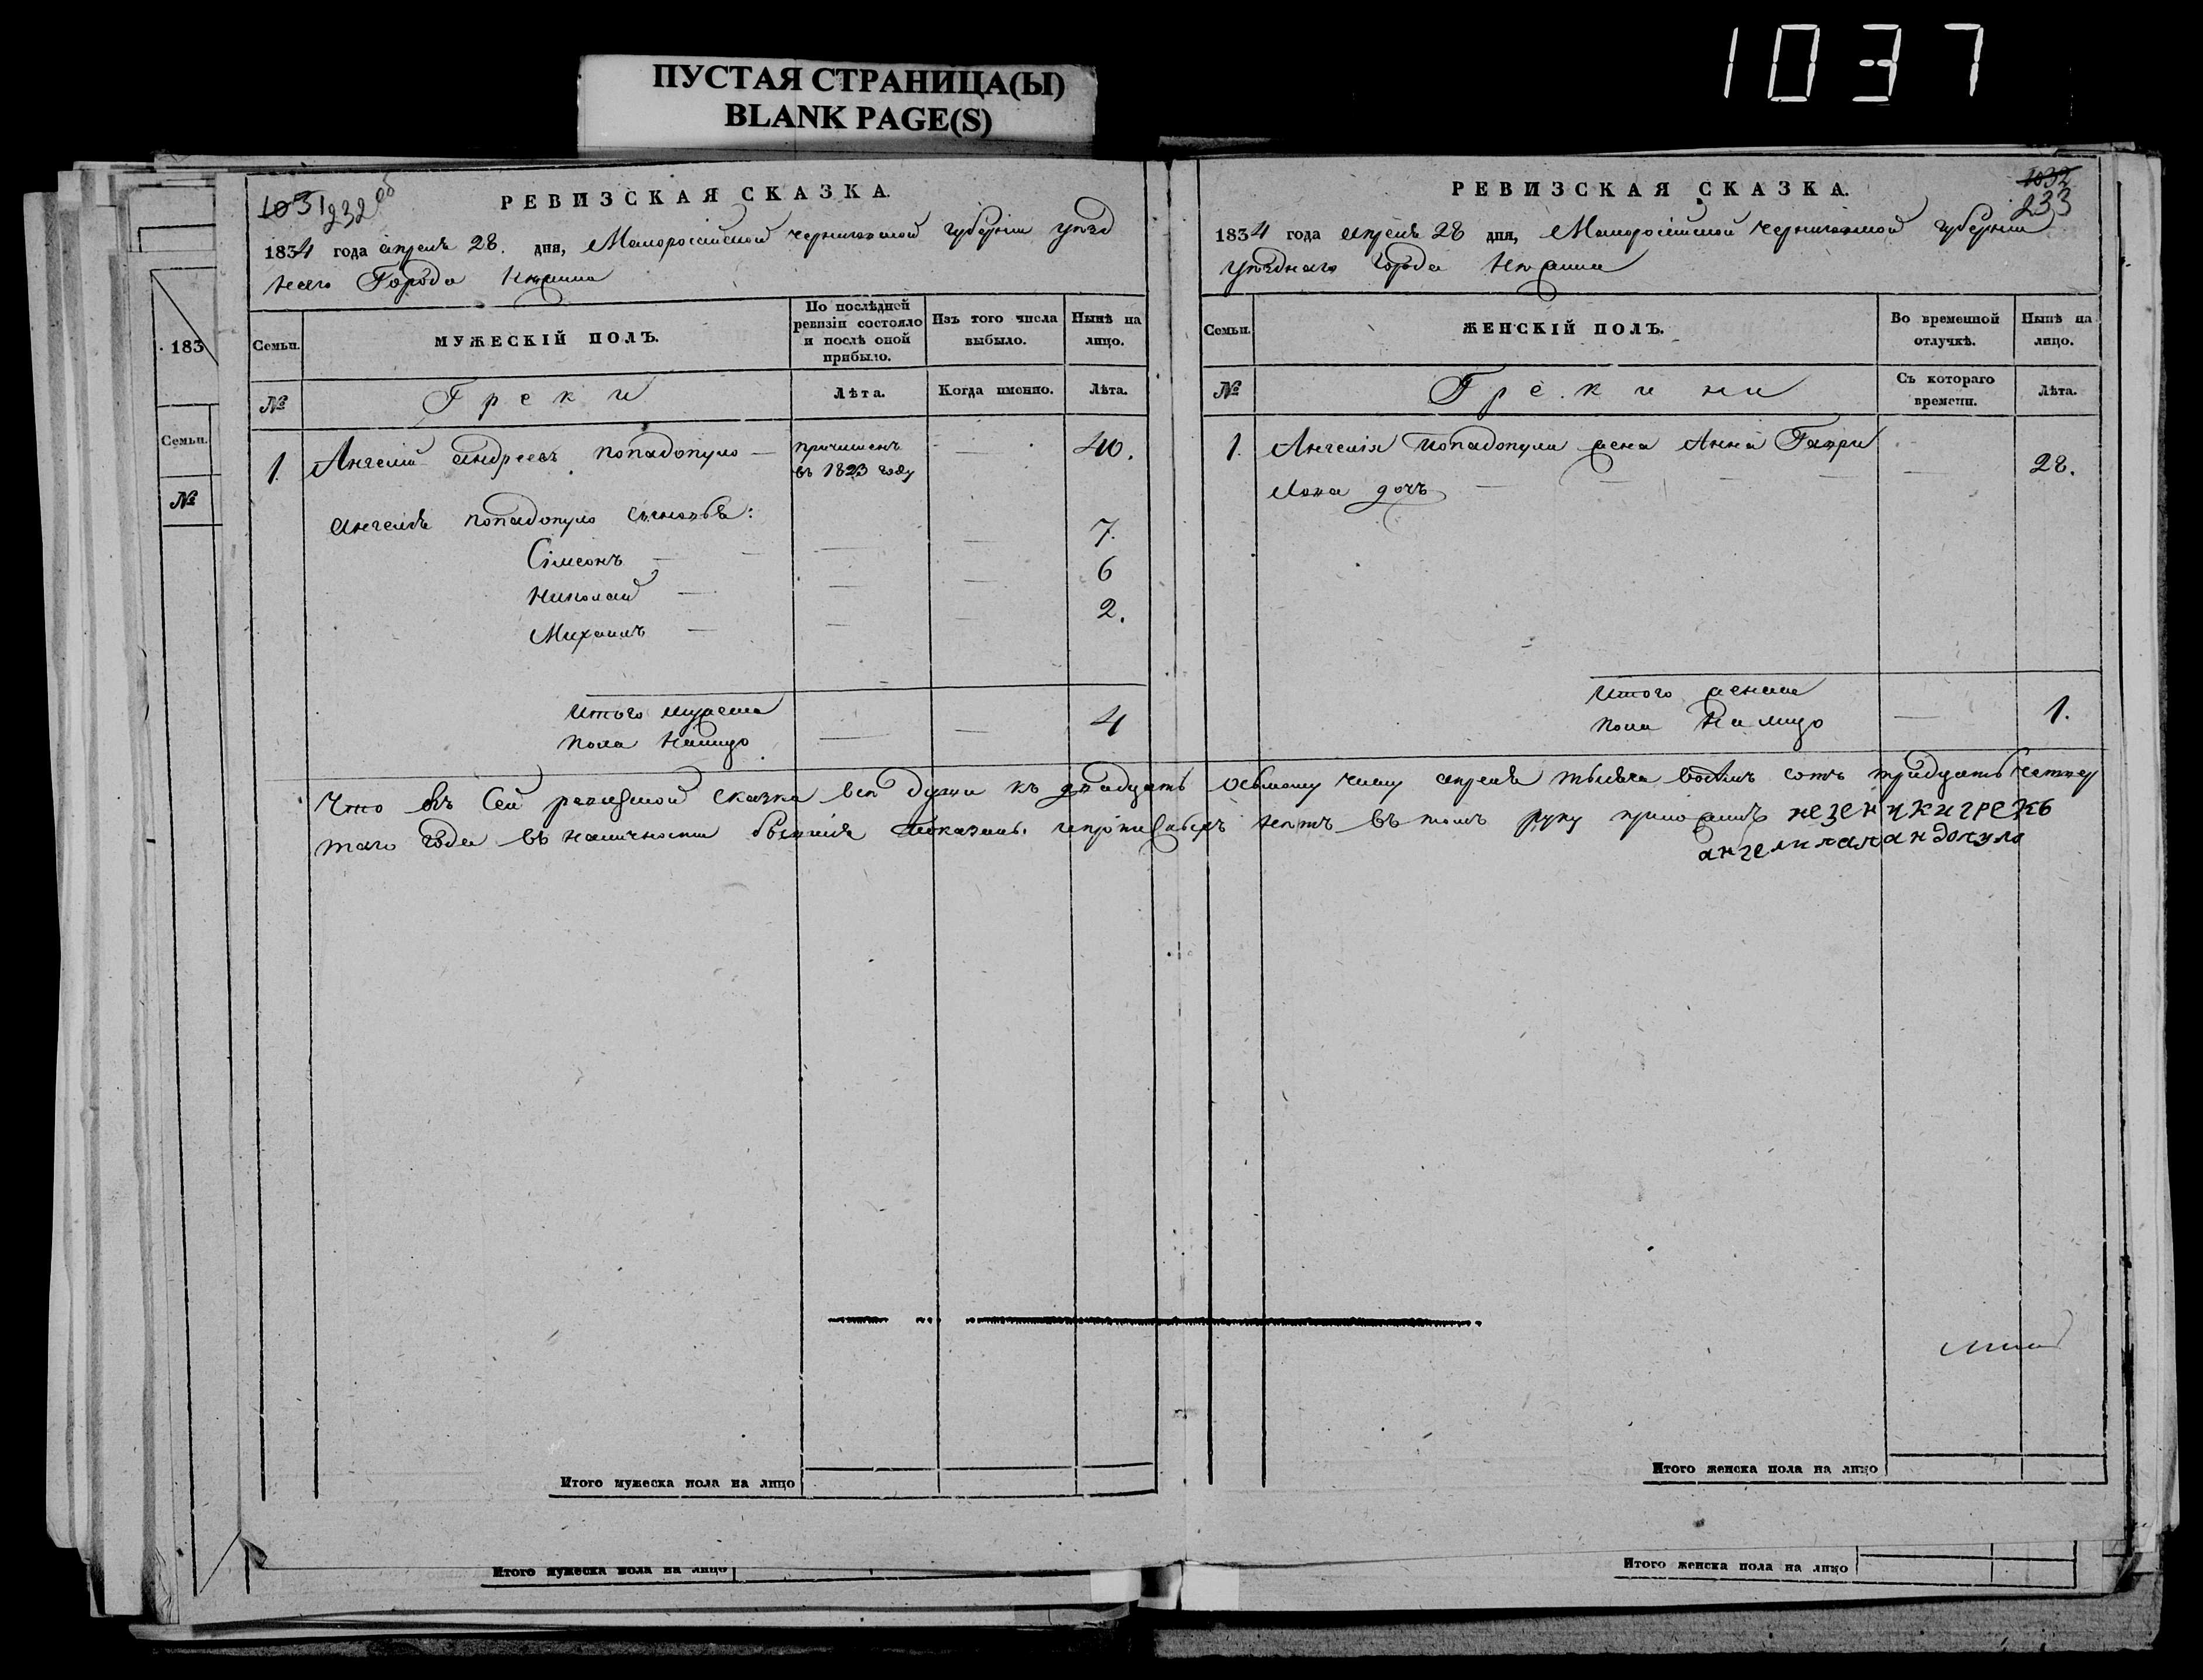 ПУСТАЯ СТРАНИЦА(Ы)
BLANK PAGE(S)
1037
1031 232 об
РЕВИЗСКАЯ СКАЗКА.
1834 года апреля 28. дня, Малороссійской Черниговской губерніи уезд
наго Города Нежина
Семьи.
МУЖЕСКІЙ ПОЛЪ.
По послѣдней ревизіи состояло и послѣ оной прибыло.
Изъ того числа выбыло.
Нынѣ на лицо.
№
Греки
Лѣта.
Когда именно.
Лѣта.
1. Ангелій Андреевъ Попадопуло — причисленъ въ 1823 году — 40.
Ангеля Попадопуло сыновья:
Сімеонъ — 7.
Николай — 6
Михаилъ — 2.
Итого мужеска
пола налицо — 4
1032
233
РЕВИЗСКАЯ СКАЗКА.
1834 года апреля 28 дня, Малоросійской Черниговской губерніи
уезднаго города Нежина
Семьи.
ЖЕНСКІЙ ПОЛЪ.
Во временной отлучкѣ.
Нынѣ на лицо.
№
Грекини
Съ котораго времени.
Лѣта.
1. Ангелія Попадопули жена Анна Гаври
лова дочь — 28.
Итого женска
пола на лицо — 1.
Что въ сей ревизской сказке все души къ двадцать осьмому числу апреля тысяча восемь сотъ тридцать четвер
таго года въ наличности бывшія показаны. и прописныхъ нетъ въ томъ руку приложилъ незенцки грекъ
ангели папандопуло
Итого мужеска пола на лицо
Итого женска пола на лицо
Итого мужеска пола на лицо
Итого женска пола на лицо
183
Семьи.
№